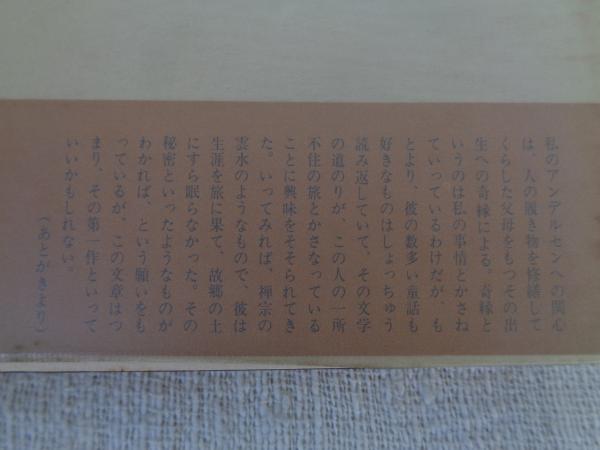 私のアンデルセンへの関心
は、人の履き物を修繕して
くらした父母をもつその出
生への奇縁による。奇縁と
いうのは私の事情とかさね
ていっているわけだが、も
とより、彼の数多い童話も
好きなものはしょっちゅう
読み返していて、その文学
の道のりが、この人の一所
不住の旅とかさなっている
ことに興味をそそられてき
た。いってみれば、禅宗の
雲水のようなもので、彼は
生涯を旅に果て、故郷の土
にすら眠らなかった。その
秘密といったようなものが
わかれば、という願いをも
っているが、この文章はつ
まり、その第一作といって
いいかもしれない。
（あとがきより）